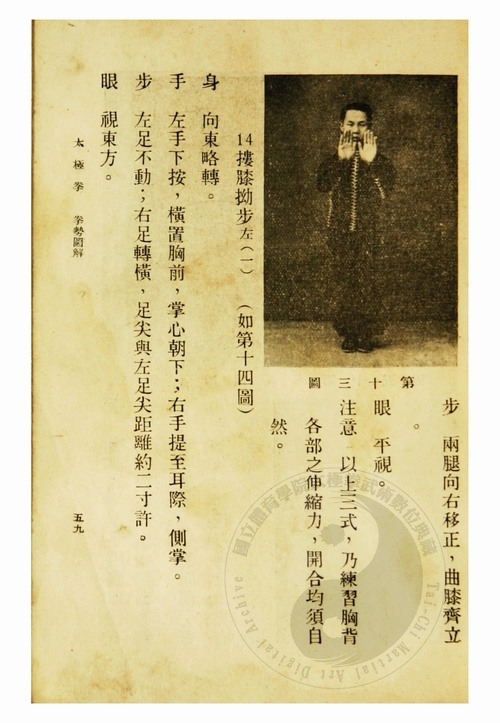 步　兩腿向右移正，曲膝齊立
。
眼　平視。
注意　以上三式，乃練習胸背
各部之伸縮力，開合均須自
然。
第十三圖
14摟膝拗步左（一）　（如第十四圖）
身　向東略轉。
手　左手下按，橫置胸前，掌心朝下；右手提至耳際，側掌。
步　左足不動；右足轉橫，足尖與左足尖距離約二寸許。
眼　視東方。
太極拳　拳勢圖解
五九
國立體育學院太極拳武術數位典藏
Tai-Chi Martial Art Digital Archive